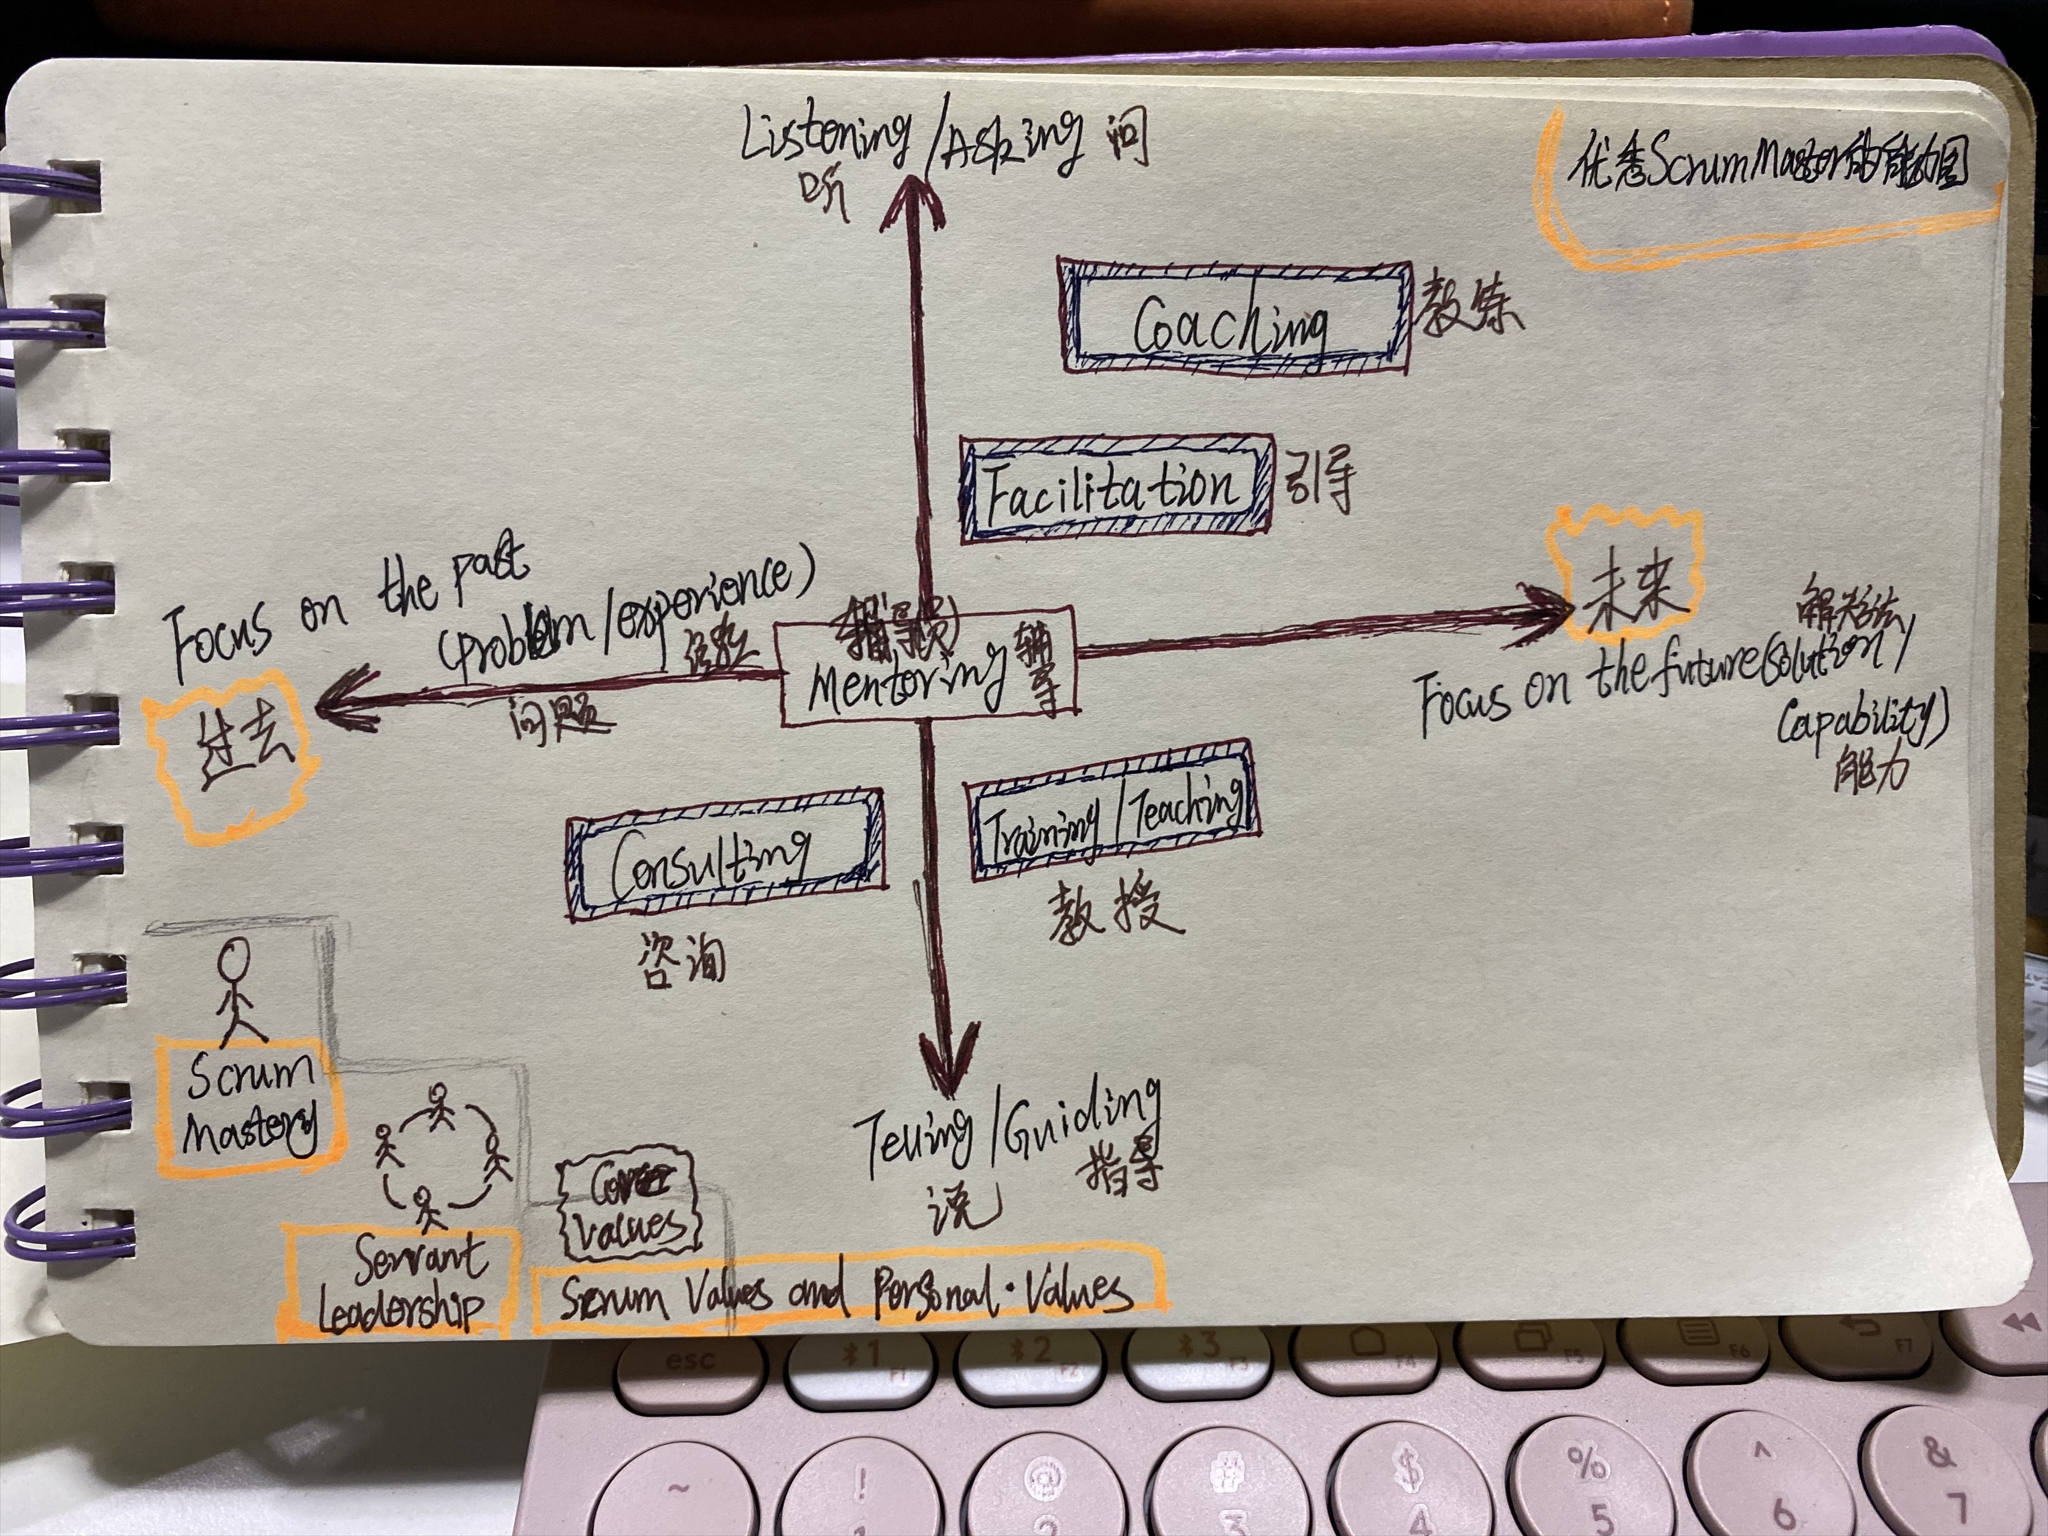 Listening/Asking 问
听
优秀ScrumMaster的能力图
Coaching 教练
Facilitation 引导
Focus on the past
(problem/experience)
经验
问题
过去
Mentoring 辅导
未来
Focus on the future(solution/
Capability)
能力
Consulting
咨询
Training/Teaching
教授
Telling/Guiding
说 指导
Scrum
Mastery
Servant
Leadership
Core
Values
Scrum Values and Personal·Values
esc
1 F1
2 F2
3 F3
F4
F5
F6
F7
~
!
1
2
3
$
4
%
5
^
6
&
7